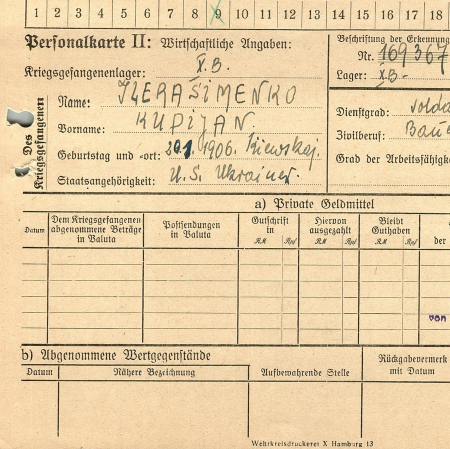 1 2 3 4 5 6 7 8 9 10 11 12 13 14 15 16 17 18
Personalkarte II: Wirtschaftliche Angaben:
Beschriftung der Erkennung
Nr. 169367
Kriegsgefangenenlager: X.B.
Lager: X.B-
Des Kriegsgefangenen
Name: ILERASIMENKO
Vorname: KUPIJAN.
Geburtstag und -ort: 20.1.1906. Kiewskaj.
Staatsangehörigkeit: U.S. Ukrainer.
Dienstgrad: Solda
Zivilberuf: Baue
Grad der Arbeitsfähigke
a) Private Geldmittel
Datum
Dem Kriegsgefangenen abgenommene Beträge in Valuta
Postsendungen in Valuta
Gutschrift in
RM Rpf
Hiervon ausgezahlt
RM Rpf
Bleibt Guthaben
RM Rpf
der
von
b) Abgenommene Wertgegenstände
Rückgabevermerk mit Datum
Datum
Nähere Bezeichnung
Aufbewahrende Stelle
Wehrkreisdruckerei X Hamburg 13